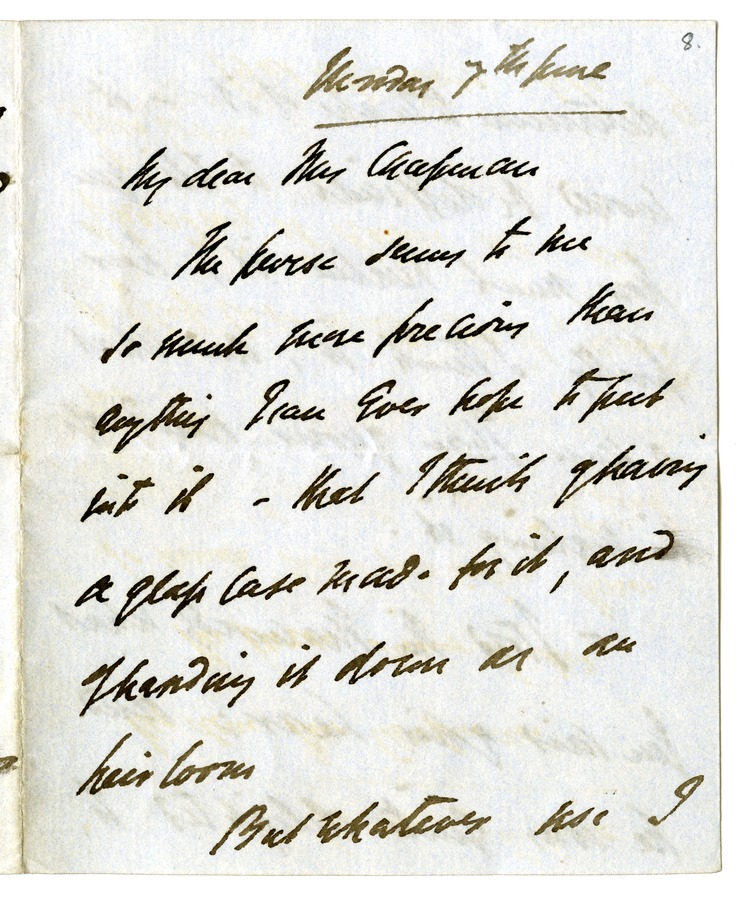 8.
Monday 7th June
My dear Mrs Chapman
The purse seems to me
so much more precious than
anything I can ever hope to put
into it - that I think of having
a glass case made for it, and
of handing it down as an
heir loom
But whatever use I